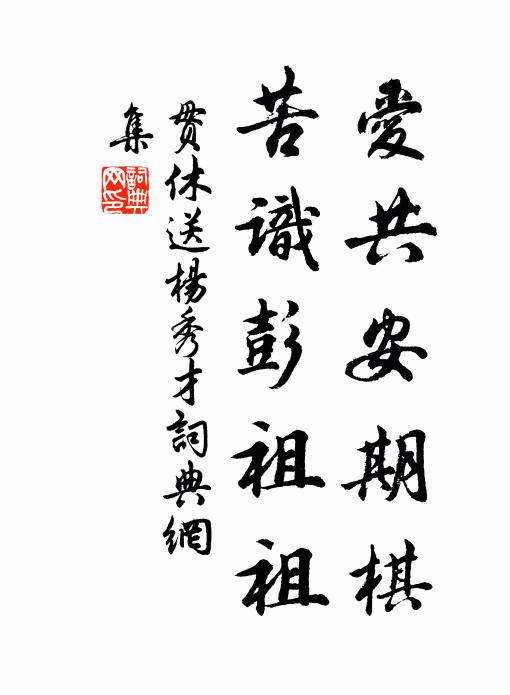 愛共安期棋
苦識彭祖祖
貫休送楊秀才詞典網
集
詞典
网印